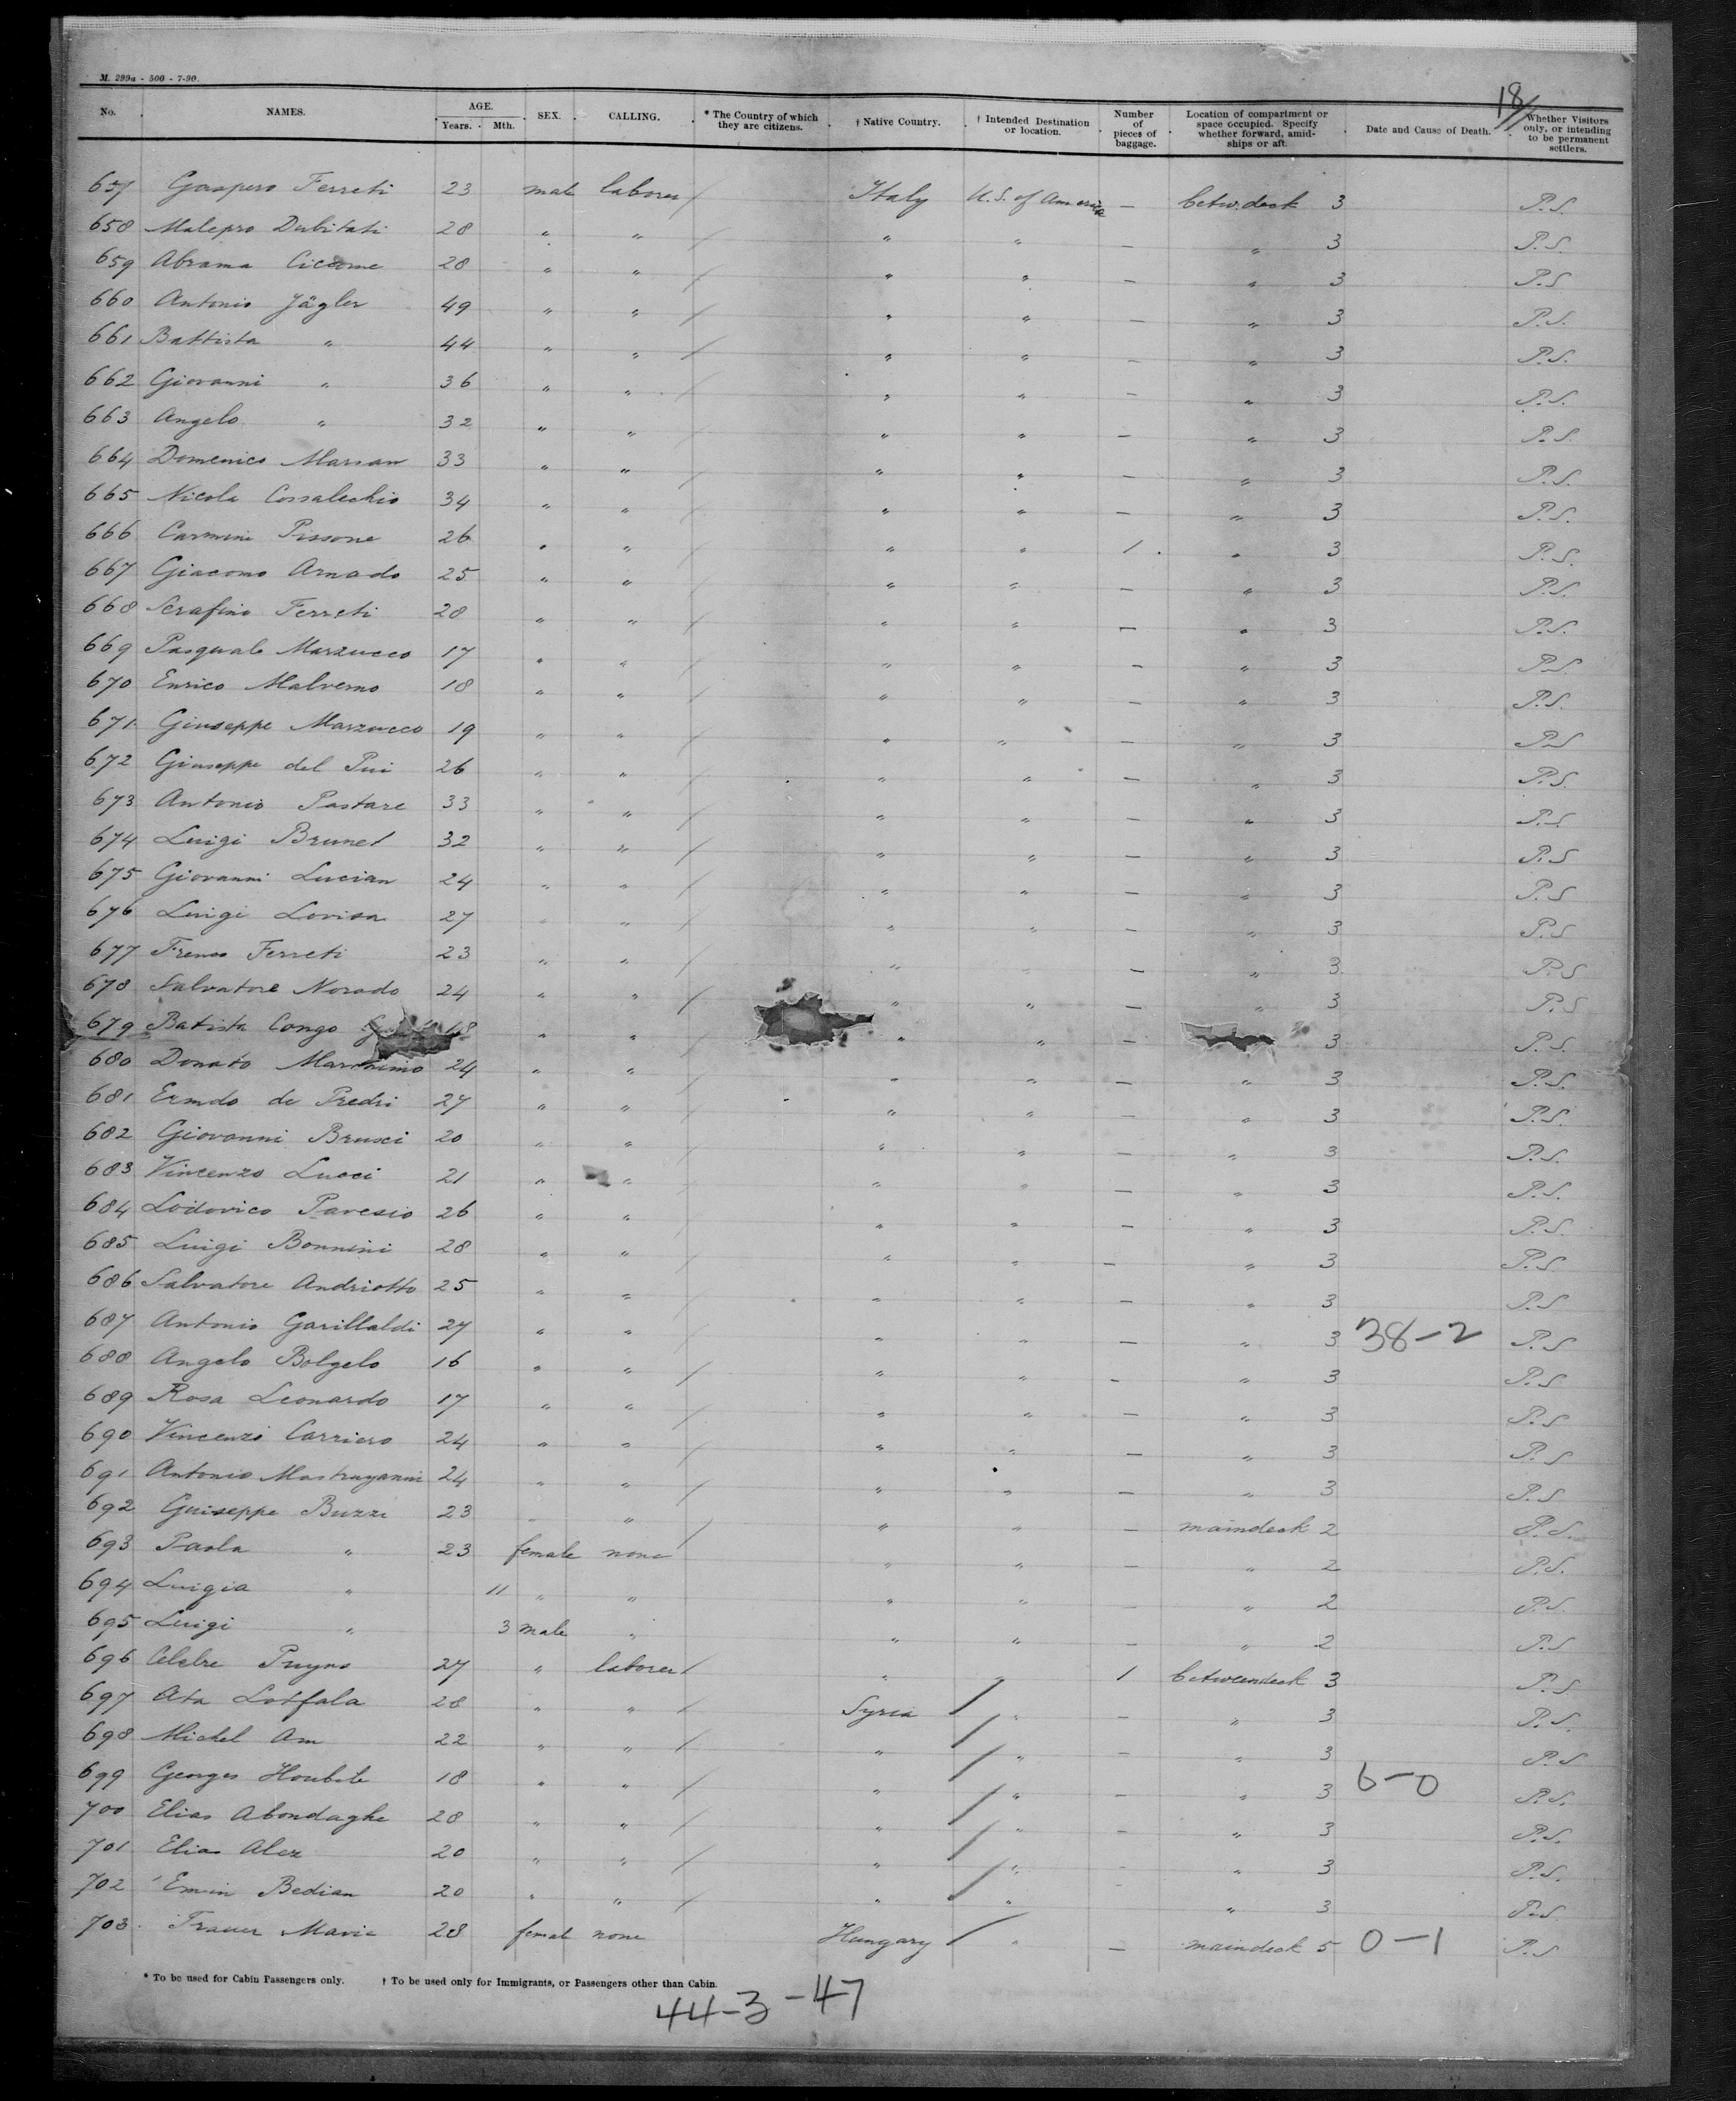 M. 299a - 500 - 7-90.
18/
No. NAMES. AGE. Years. Mth. SEX. CALLING. * The Country of which they are citizens. † Native Country. † Intended Destination or location. Number of pieces of baggage. Location of compartment or space occupied. Specify whether forward, amidships or aft. Date and Cause of Death. Whether Visitors only, or intending to be permanent settlers.
657 Gaspero Ferreti 23 male laborer / Italy U.S. of America — betw. deck 3 P.S.
658 Malepro Dubitati 28 " " / " " — " 3 P.S.
659 Abrama Ciccome 28 " " / " " — " 3 P.S.
660 Antonio Jägler 49 " " / " " — " 3 P.S.
661 Battista " 44 " " / " " — " 3 P.S.
662 Giovanni " 36 " " / " " — " 3 P.S.
663 Angelo " 32 " " / " " — " 3 P.S.
664 Domenico Marsan 33 " " / " " — " 3 P.S.
665 Nicola Cossalechio 34 " " / " " — " 3 P.S.
666 Carmini Pissone 26 " " / " " 1 " 3 P.S.
667 Giacomo Arnado 25 " " / " " — " 3 P.S.
668 Serafino Ferreti 28 " " / " " — " 3 P.S.
669 Pasquale Marzucco 17 " " / " " — " 3 P.S.
670 Enrico Malverno 18 " " / " " — " 3 P.S.
671 Giuseppe Marzucco 19 " " / " " — " 3 P.S.
672 Giuseppe del Pui 26 " " / " " — " 3 P.S.
673 Antonio Pastare 33 " " / " " — " 3 P.S.
674 Luigi Brunet 32 " " / " " — " 3 P.S.
675 Giovanni Lucian 24 " " / " " — " 3 P.S.
676 Luigi Lovisa 27 " " / " " — " 3 P.S.
677 Ferreti 23 " " / " " — " 3 P.S.
678 Salvatore Norado 24 " " / " " — " 3 P.S.
679 Batista Congo " " " " — 3 P.S.
680 Donato Marchimo 24 " " / " " — " 3 P.S.
681 Ermdo de Predri 27 " " / " " — " 3 P.S.
682 Giovanni Brusci 20 " " / " " — " 3 P.S.
683 Vincenzo Lucci 21 " " / " " — " 3 P.S.
684 Lodovico Pavesio 26 " " / " " — " 3 P.S.
685 Luigi Bonnini 28 " " / " " — " 3 P.S.
686 Salvatore Andriotto 25 " " / " " — " 3 P.S.
687 Antonio Garillaldi 27 " " / " " — " 3 38-2 P.S.
688 Angelo Bolgelo 16 " " / " " — " 3 P.S.
689 Rosa Leonardo 17 " " / " " — " 3 P.S.
690 Vincenzo Carriero 24 " " / " " — " 3 P.S.
691 Antonio Mastruyanni 24 " " / " " — " 3 P.S.
692 Guiseppe Buzzi 23 " " / " " — maindeck 2 P.S.
693 Paola " 23 female none " " — " 2 P.S.
694 Luigia " 11 " " " " — " 2 P.S.
695 Luigi " 3 male " " " — " 2 P.S.
696 Celebre Puyno 27 " laborer / " " 1 betweendeck 3 P.S.
697 Ata Lotfala 28 " " / Syria / " — " 3 P.S.
698 Michel Am 22 " " / " / " — " 3 P.S.
699 Georges Houbile 18 " " / " / " — " 3 6-0 P.S.
700 Elias Abondaghe 28 " " / " / " — " 3 P.S.
701 Elias Alex 20 " " / " / " — " 3 P.S.
702 Emin Bedian 20 " " / " / " " 3 P.S.
703 Trauer Marie 28 female none Hungary / " — maindeck 5 0-1 P.S.
* To be used for Cabin Passengers only. † To be used only for Immigrants, or Passengers other than Cabin.
44-3-47